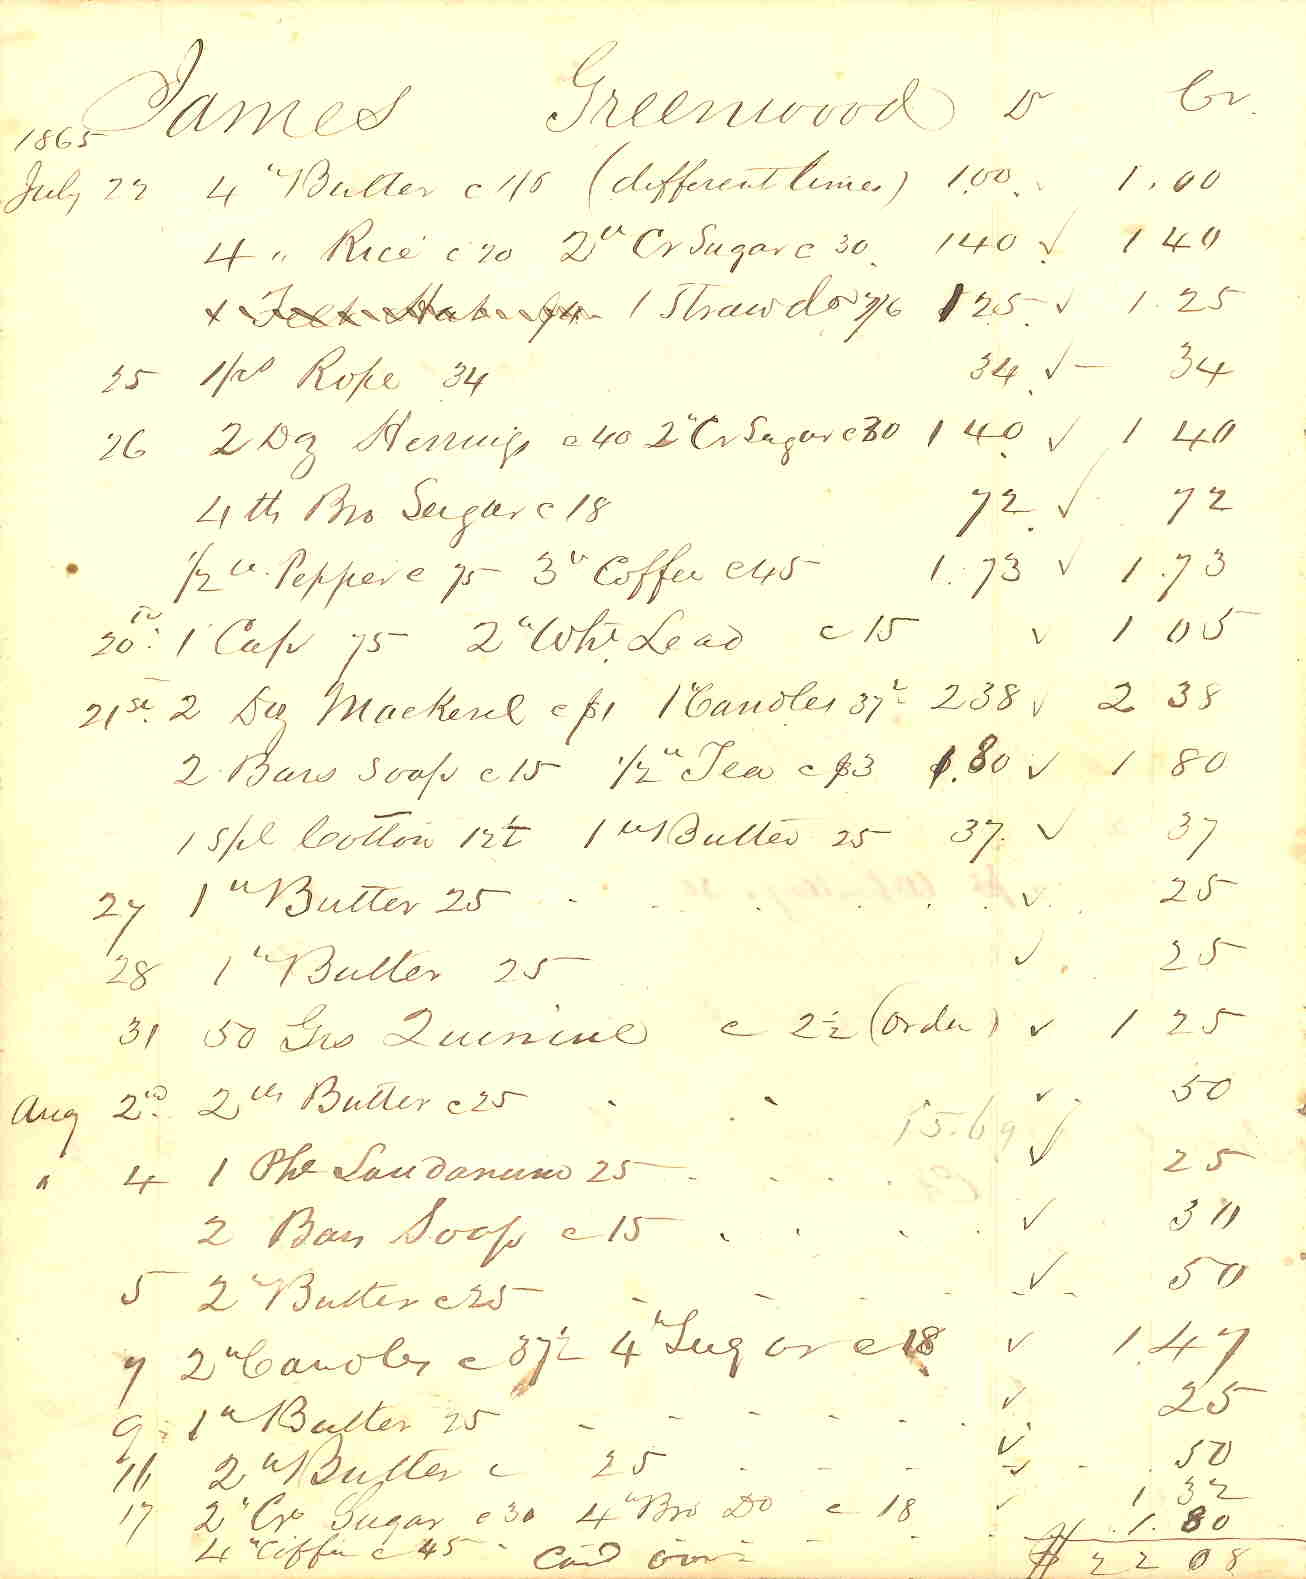 James Greenwood D Cr.
1865
July 22 4 " Butter c 1/6 (different times) 1.00. 1.00
4 " Rice c 20 2 " Cr Sugar c 30. 140 ✓ 1 40
1 Felt Hat 1 Straw do 7/6 125 ✓ 1.25
25 Rope 34 34 ✓ 34
26 2 Dz Herrings c 40 2 " Cr Sugar c 30 1 40 ✓ 1 40
4 lb Bro Sugar c 18 72 ✓ 72
1/2 " Pepper c 75 3 " Coffee c 45 1.73 ✓ 1.73
20th 1 Cap 75 2 " Wht. Lead c 15 ✓ 1 05
21st. 2 Doz Mackerel c $1 1 " Candles 37½ 238 ✓ 2 38
2 Bars Soap c 15 1/2 " Tea c $3 1.80 ✓ 1 80
1 Spl Cotton 12½ 1 " Butter 25 37. ✓ 37
27 1 " Butter 25 ✓ 25
28 1 " Butter 25 ✓ 25
31 50 Grs Quinine c 2½ (order) ✓ 1 25
Aug 2nd 2 lbs Butter c 25 ✓ 50
15.69
" 4 1 Phl Laudanum 25 ✓ 25
2 Bars Soap c 15 ✓ 30
5 2 " Butter c 25 ✓ 50
7 2 " Candles c 37½ 4 " Sugar c 18 ✓ 1.47
9 1 " Butter 25 ✓ 25
16 2 " Butter c 25 ✓ 50
17 2 " Cr Sugar c 30 4 " Bro Do c 18 ✓ 1 32
4 " Coffee c 45 1.80
Card over $ 22 08